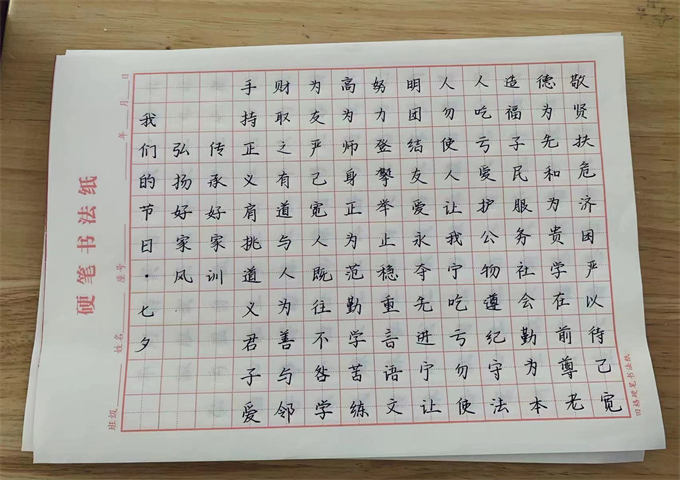 敬贤扶危济困严以待己宽
德为先和为贵学在前尊老
造福子民服务社会勤为本
人吃亏爱护公物遵纪守法
人勿使人让我宁吃亏勿使
明团结友爱永夺先进宁让
努力登攀举止稳重言语文
高为师身正为范勤学苦练
为友严己宽人既往不咎学
财取之有道与人为善与邻
手持正义肩挑道义君子爱
传承好家训
弘扬好家风
我们的节日·七夕
班级 姓名 座号 年 月 日
硬笔书法纸
田格硬笔书法纸